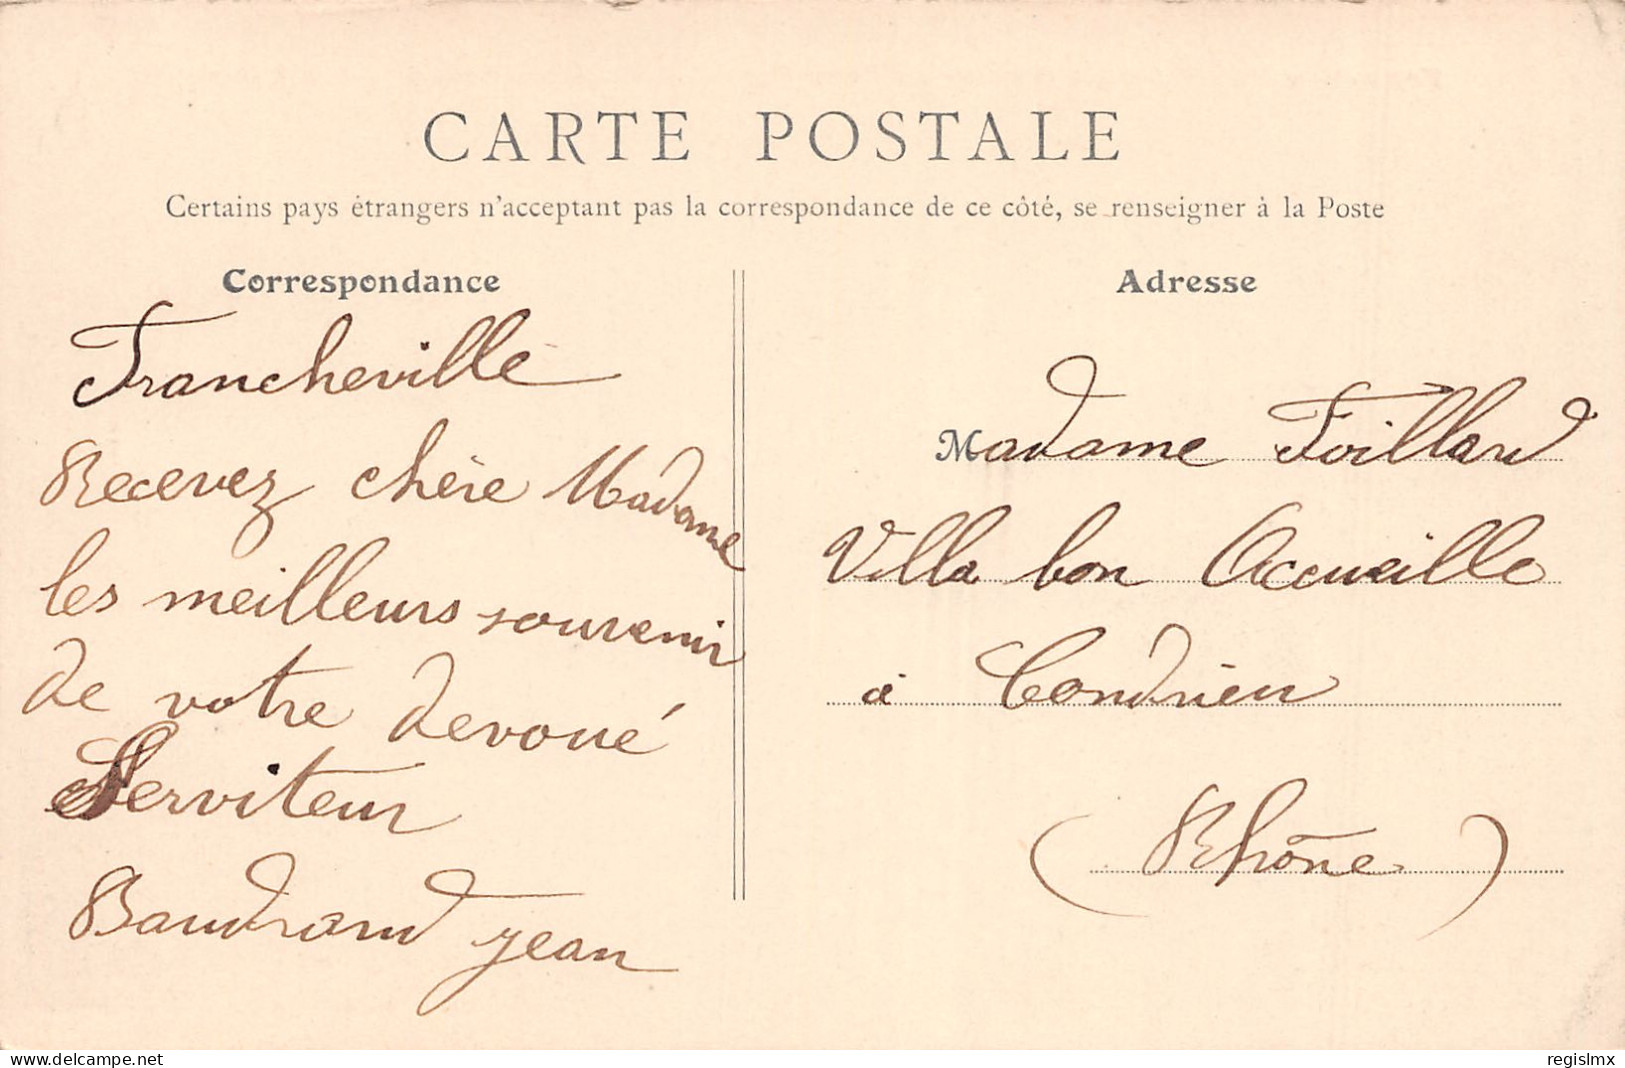 CARTE POSTALE
Certains pays étrangers n'acceptant pas la correspondance de ce côté, se renseigner à la Poste
Correspondance
Francheville
Recevez chère Madame
les meilleurs souvenir
de votre devoué
Serviteur
Baudrand jean
Adresse
Madame Foillard
Villa bon Accueille
à Condrieu
(Rhône)
www.delcampe.net
regislmx